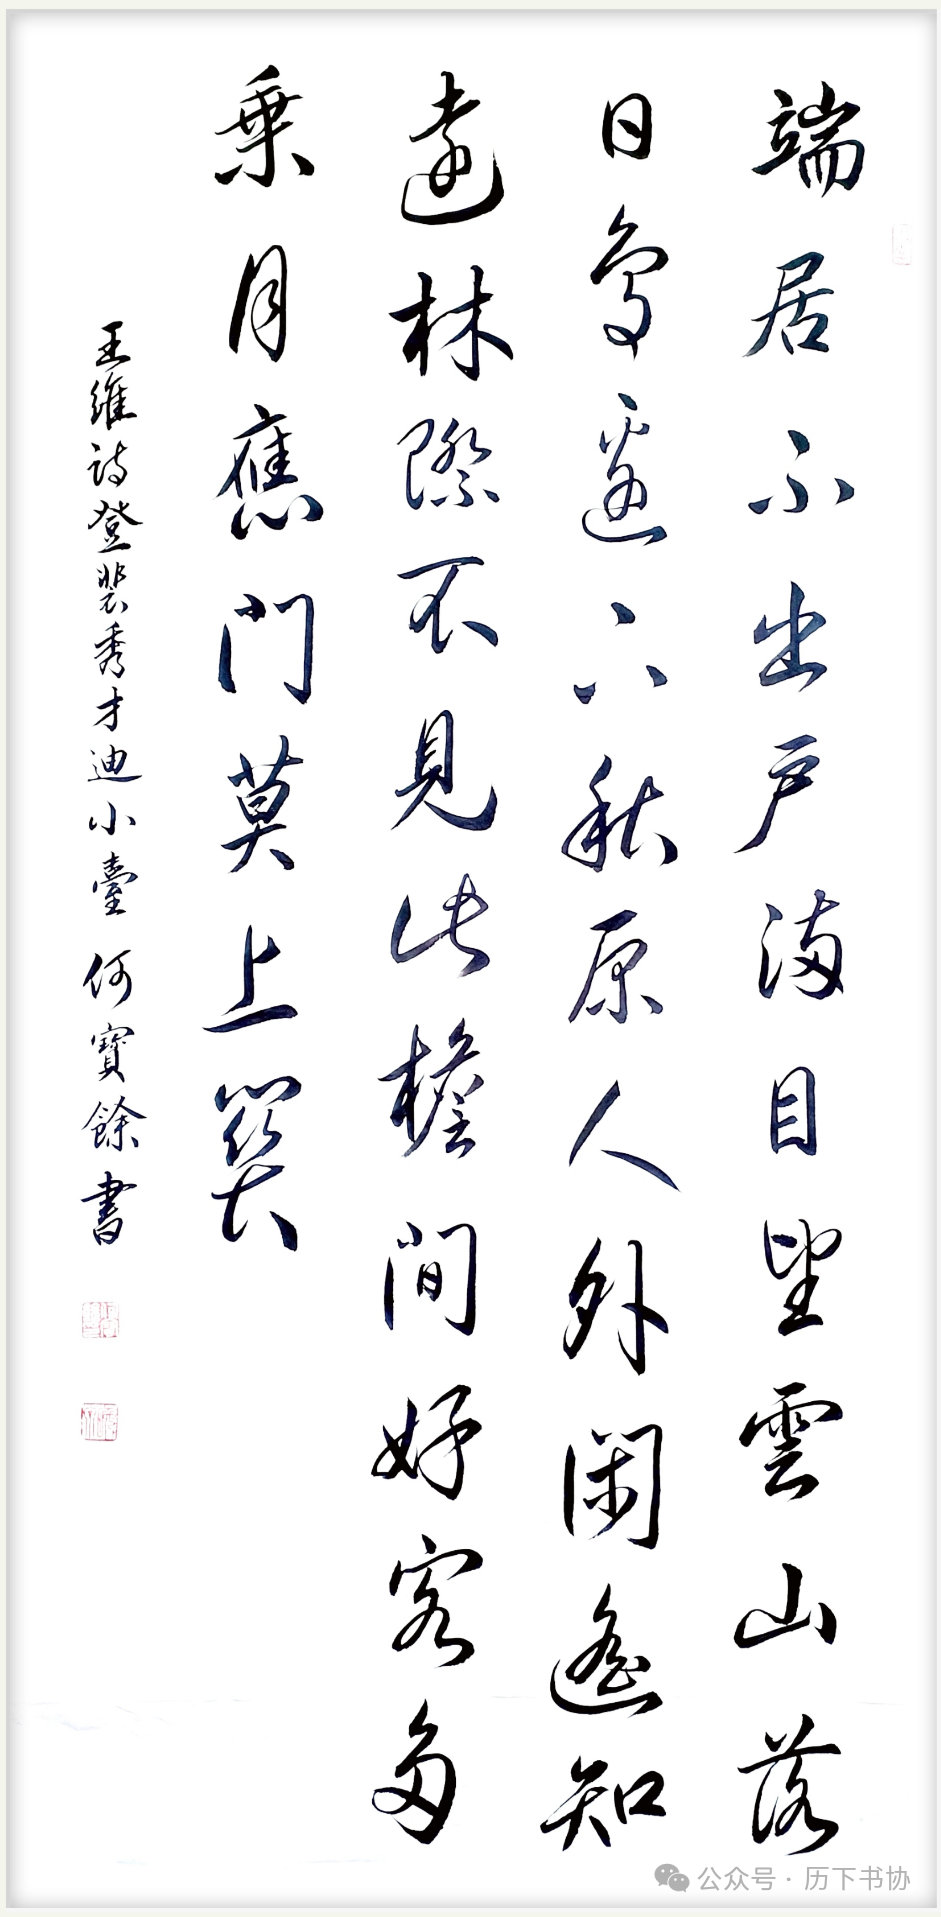 端居不出戶滿目望雲山落
日鳥邊下秋原人外閑遙知
遠林際不見此檐間好客多
乗月應門莫上關
王維詩登裴秀才迪小臺 何寶餘書
公众号 · 历下书协